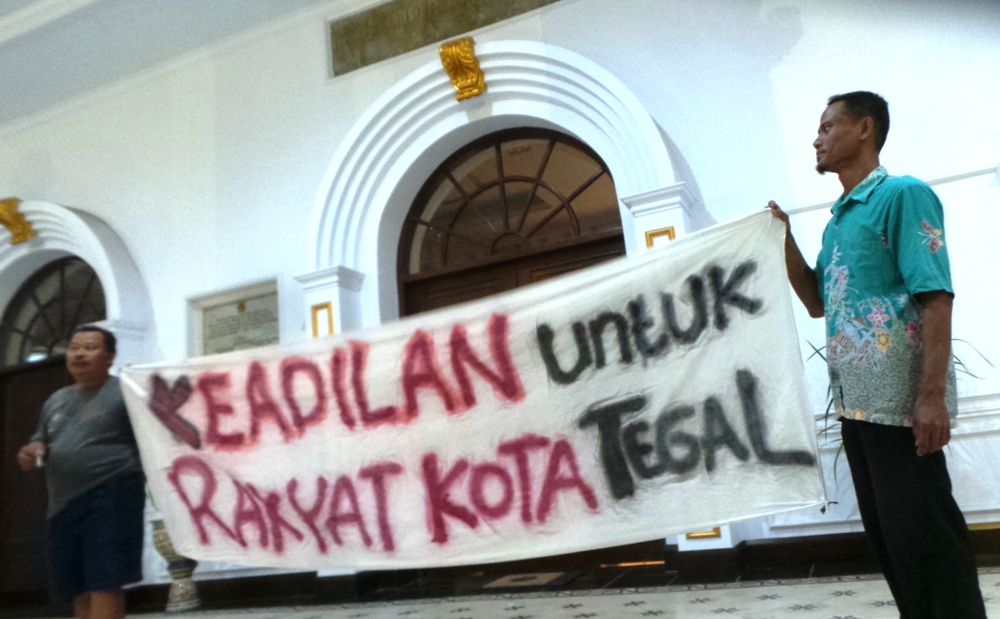 KEADILAN UNTUK
RAKYAT KOTA TEGAL